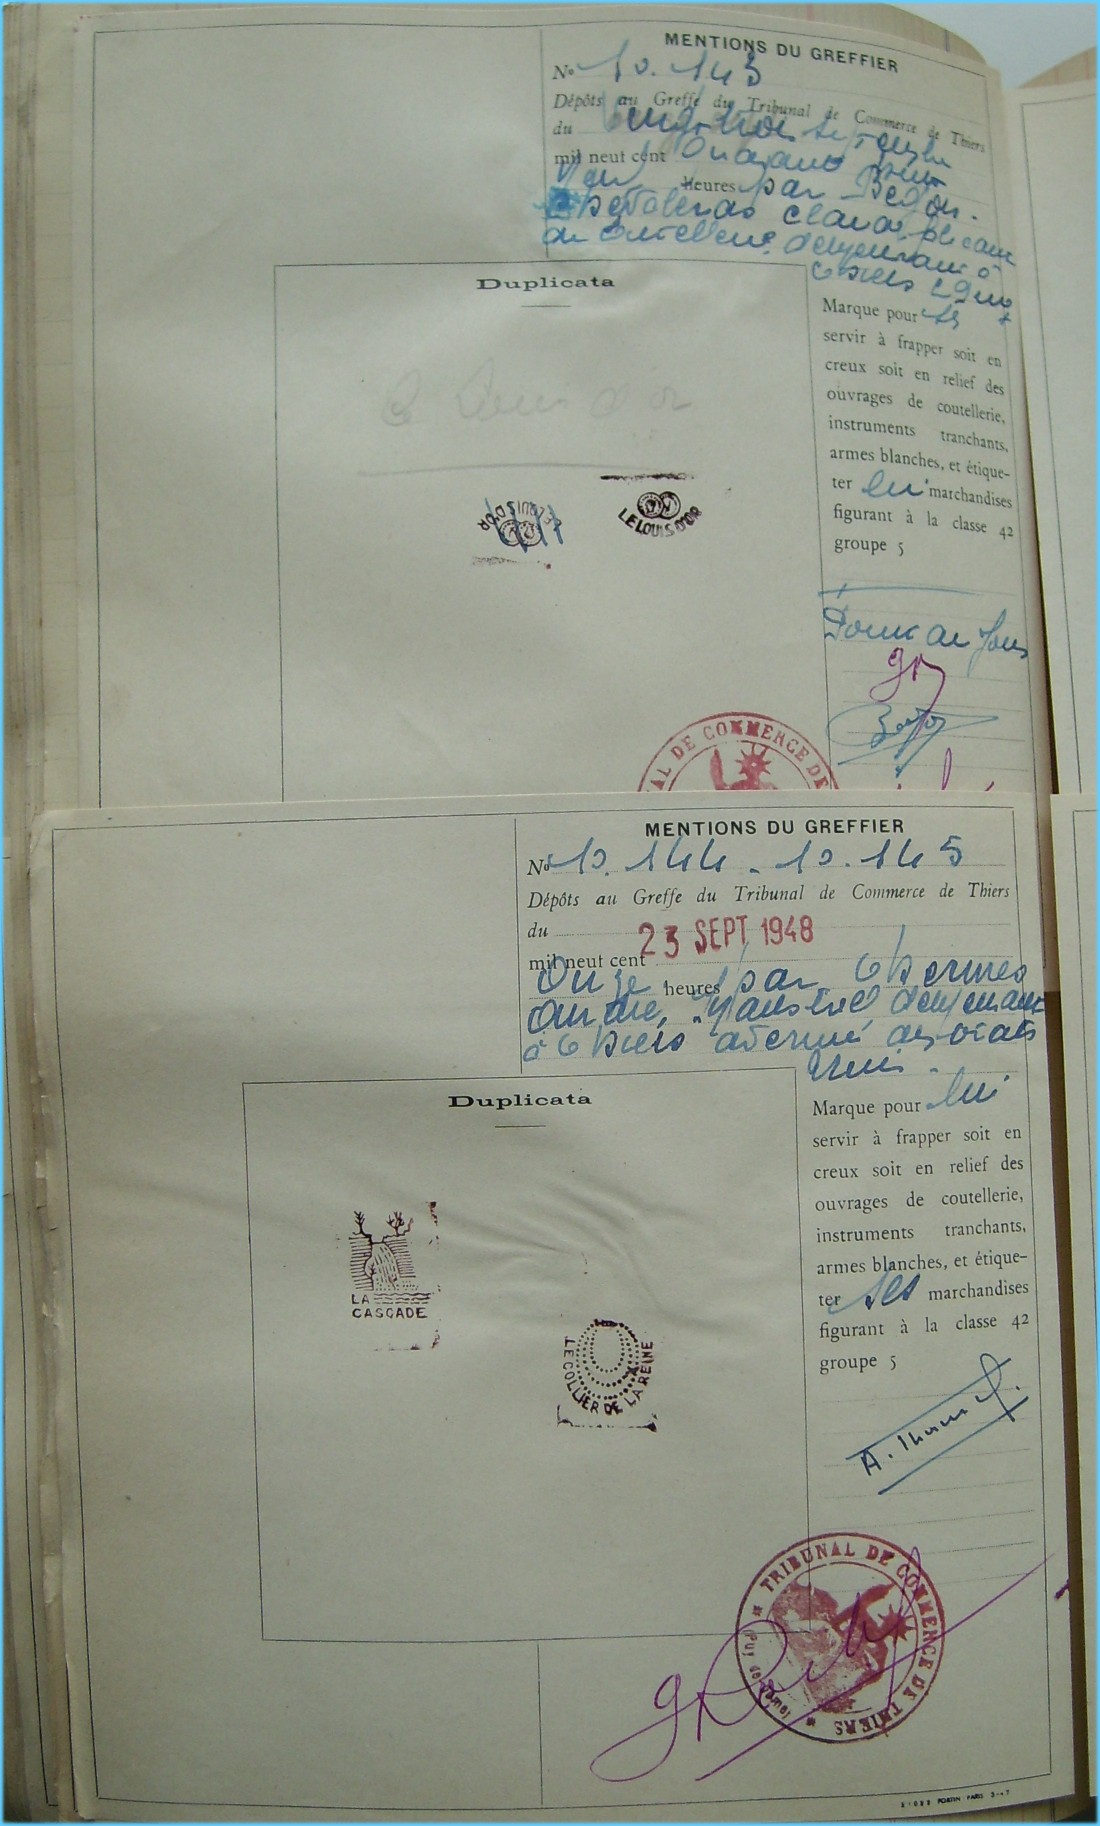 MENTIONS DU GREFFIER
No 10.143
Dépôts au Greffe du Tribunal de Commerce de Thiers
du vingt trois septembre
mil neuf cent quarante huit
heures par Begon-
demeurant à
Thiers
Duplicata
Le Louis d'or
LE LOUIS D'OR
LE LOUIS D'OR
Marque pour
servir à frapper soit en
creux soit en relief des
ouvrages de coutellerie,
instruments tranchants,
armes blanches, et étique-
ter marchandises
figurant à la classe 42
groupe 5
TRIBUNAL DE COMMERCE DE
MENTIONS DU GREFFIER
No 10.144 - 10.145
Dépôts au Greffe du Tribunal de Commerce de Thiers
du 23 SEPT 1948
mil neuf cent
Onze heures par
demeurant
à Thiers
Duplicata
LA
CASCADE
LE COLLIER DE LA REINE
Marque pour lui
servir à frapper soit en
creux soit en relief des
ouvrages de coutellerie,
instruments tranchants,
armes blanches, et étique-
ter ses marchandises
figurant à la classe 42
groupe 5
TRIBUNAL DE COMMERCE DE THIERS
(Puy de Dôme)